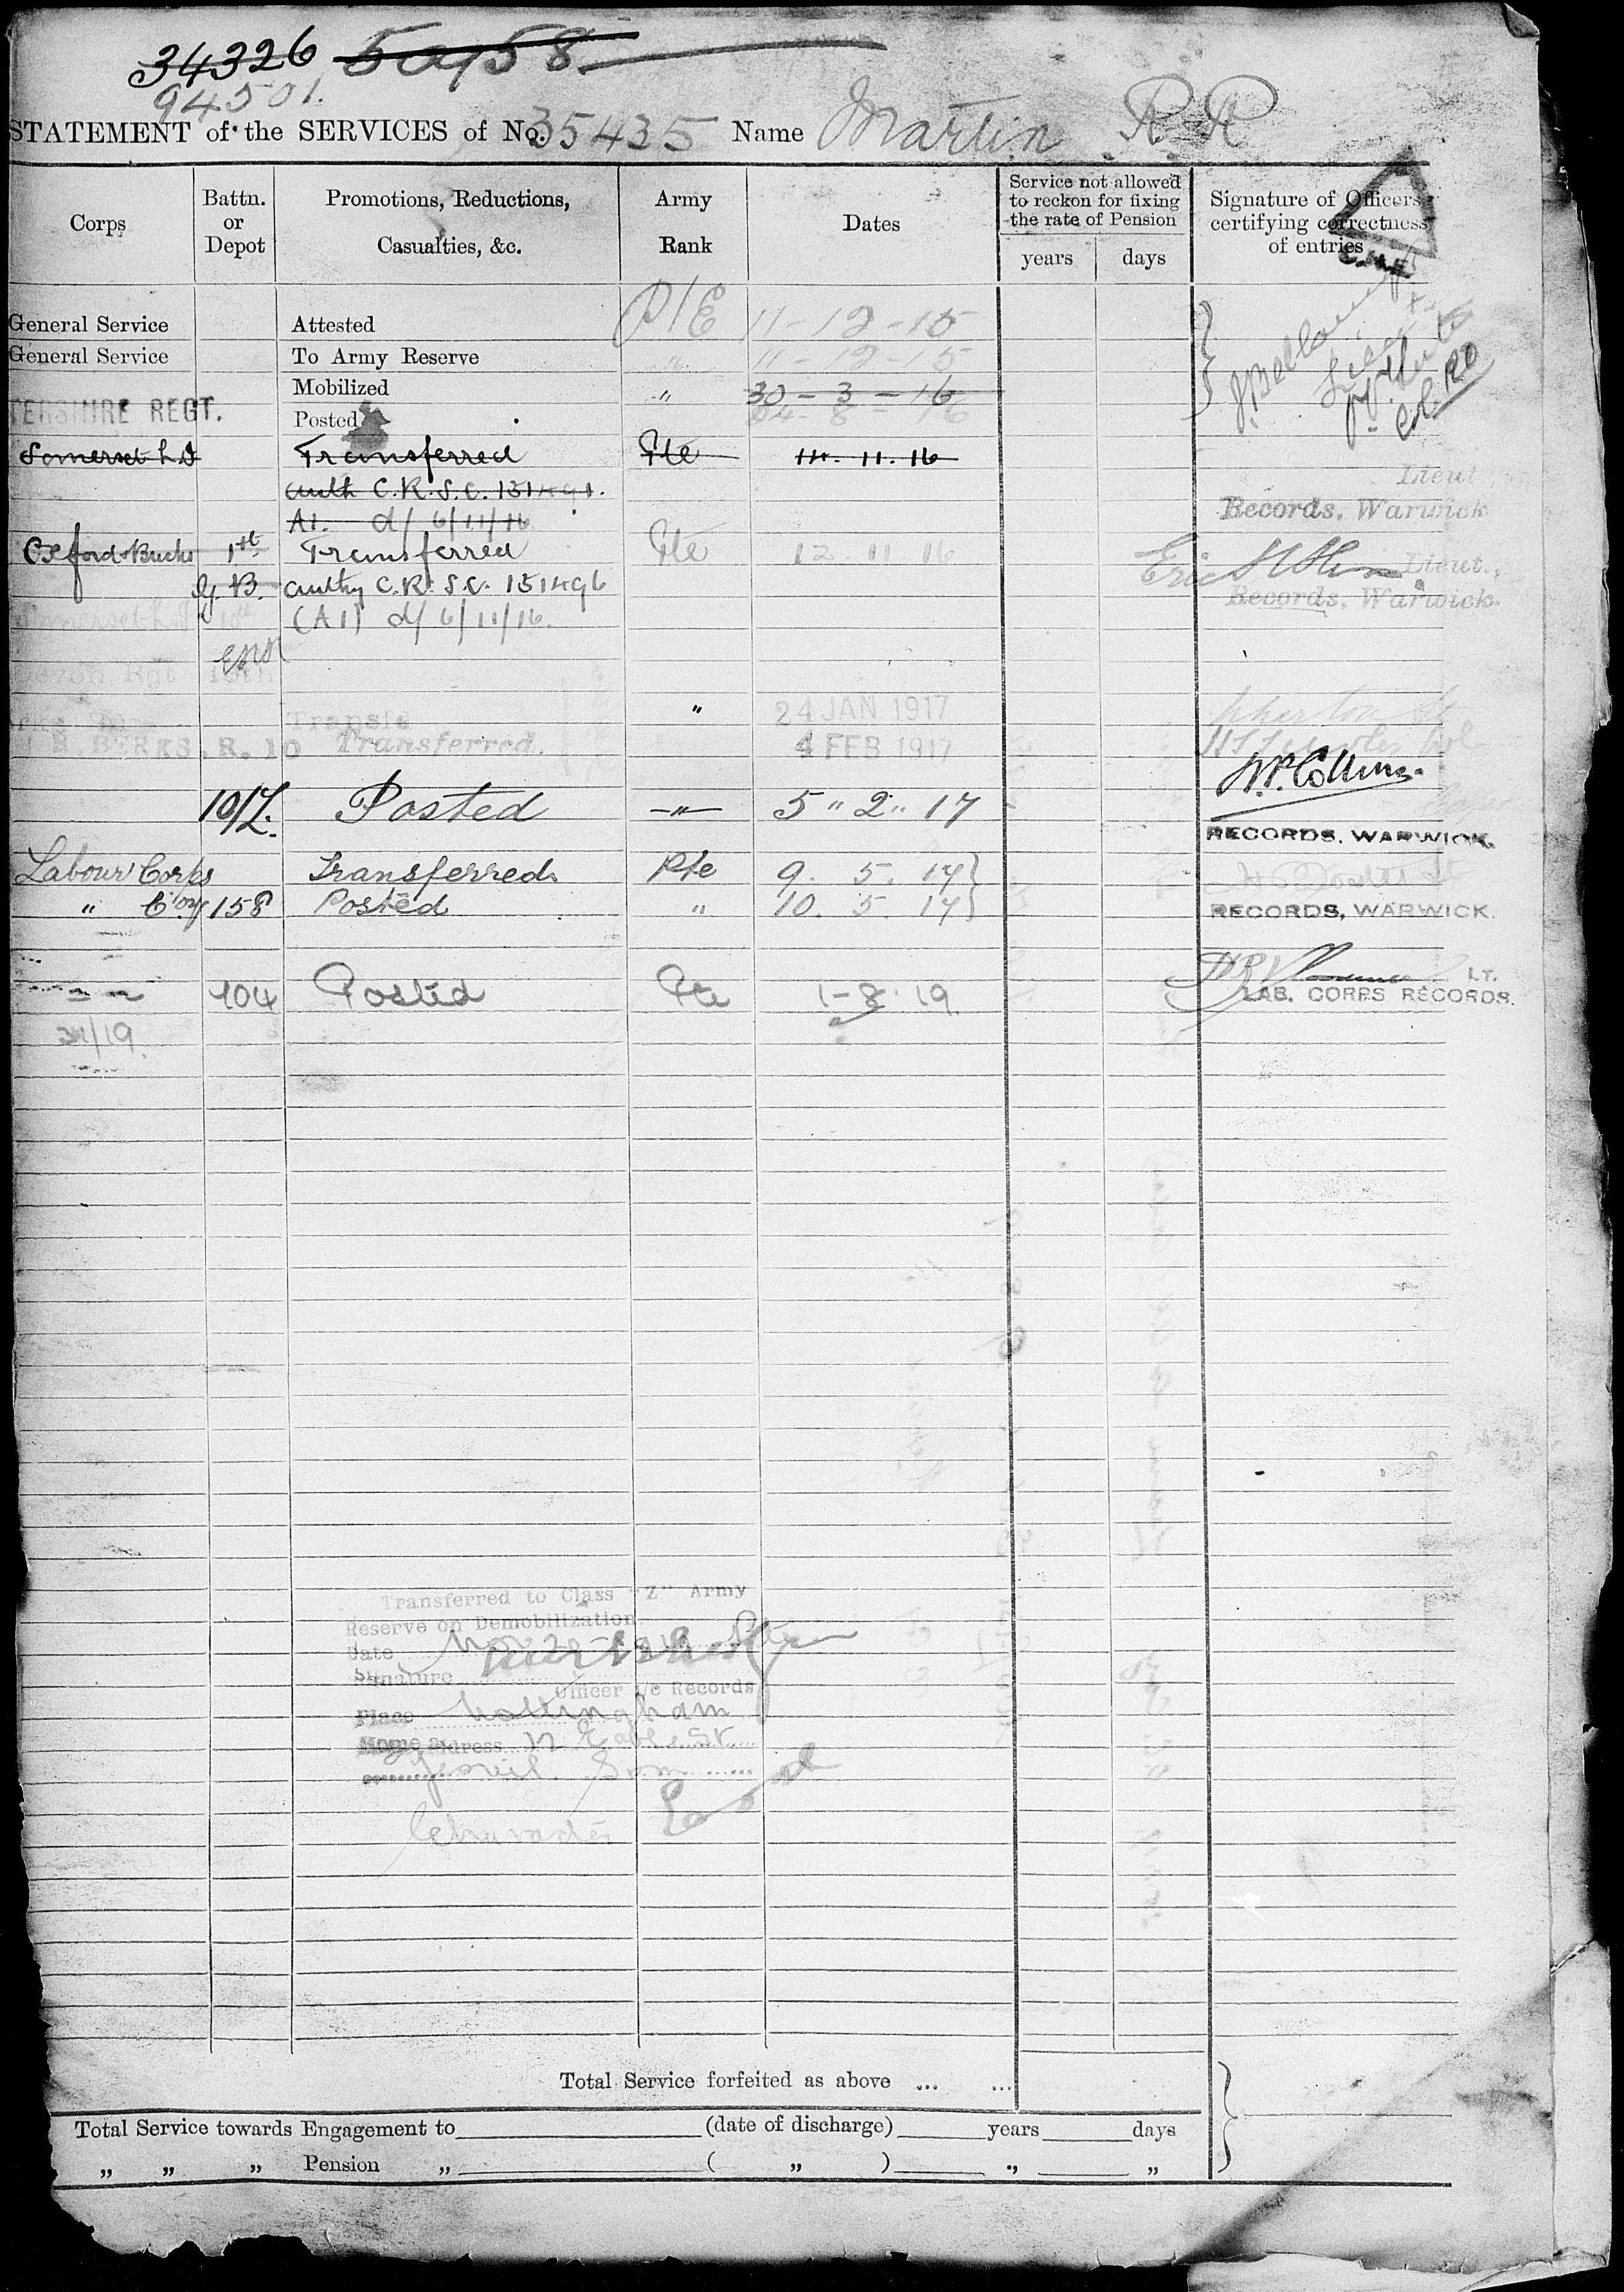 34326 5a158
94501.
STATEMENT of the SERVICES of No. 35435 Name Martin R R
Corps
Battn. or Depot
Promotions, Reductions, Casualties, &c.
Army Rank
Dates
Service not allowed to reckon for fixing the rate of Pension
years days
Signature of Officers certifying correctness of entries
General Service Attested P/E 11-12-15
General Service To Army Reserve " 11-12-15
Mobilized " 30-3-16
TERSHIRE REGT. Posted 24-8-16
Somerset L.I Transferred Pte 11. 16 Lieut
auth C.R.S.C. Records, Warwick
A1. d/ 6/11/16
Oxford & Bucks 1st Transferred Pte 12 11 16 Eric Lieut.,
G.B. authy C.R.S.C. 151496 Records, Warwick.
Somerset L.I (A1) d/ 6/11/16.
Devon Rgt
Transfd " 24 JAN 1917
R. BERKS. R. 10 Transferred. 4 FEB 1917
W.P. Collins.
10/L. Posted —"— 5 " 2 " 17
RECORDS, WARWICK.
Labour Corps Transferred Pte 9. 5. 17
" Coy 158 Posted " 10. 5 17 RECORDS, WARWICK.
LT.
104 Posted Pte 1-8-19. LAB. CORPS RECORDS.
/19.
Transferred to Class "Z" Army
Reserve on Demobilization
Date
Signature
Officer i/c Records
Place Nottingham
Home Address 12 Earle St.
Yeovil. Som
Character Good
Total Service forfeited as above ... ...
Total Service towards Engagement to (date of discharge) years days
„ „ „ Pension „ ( „ ) „ „